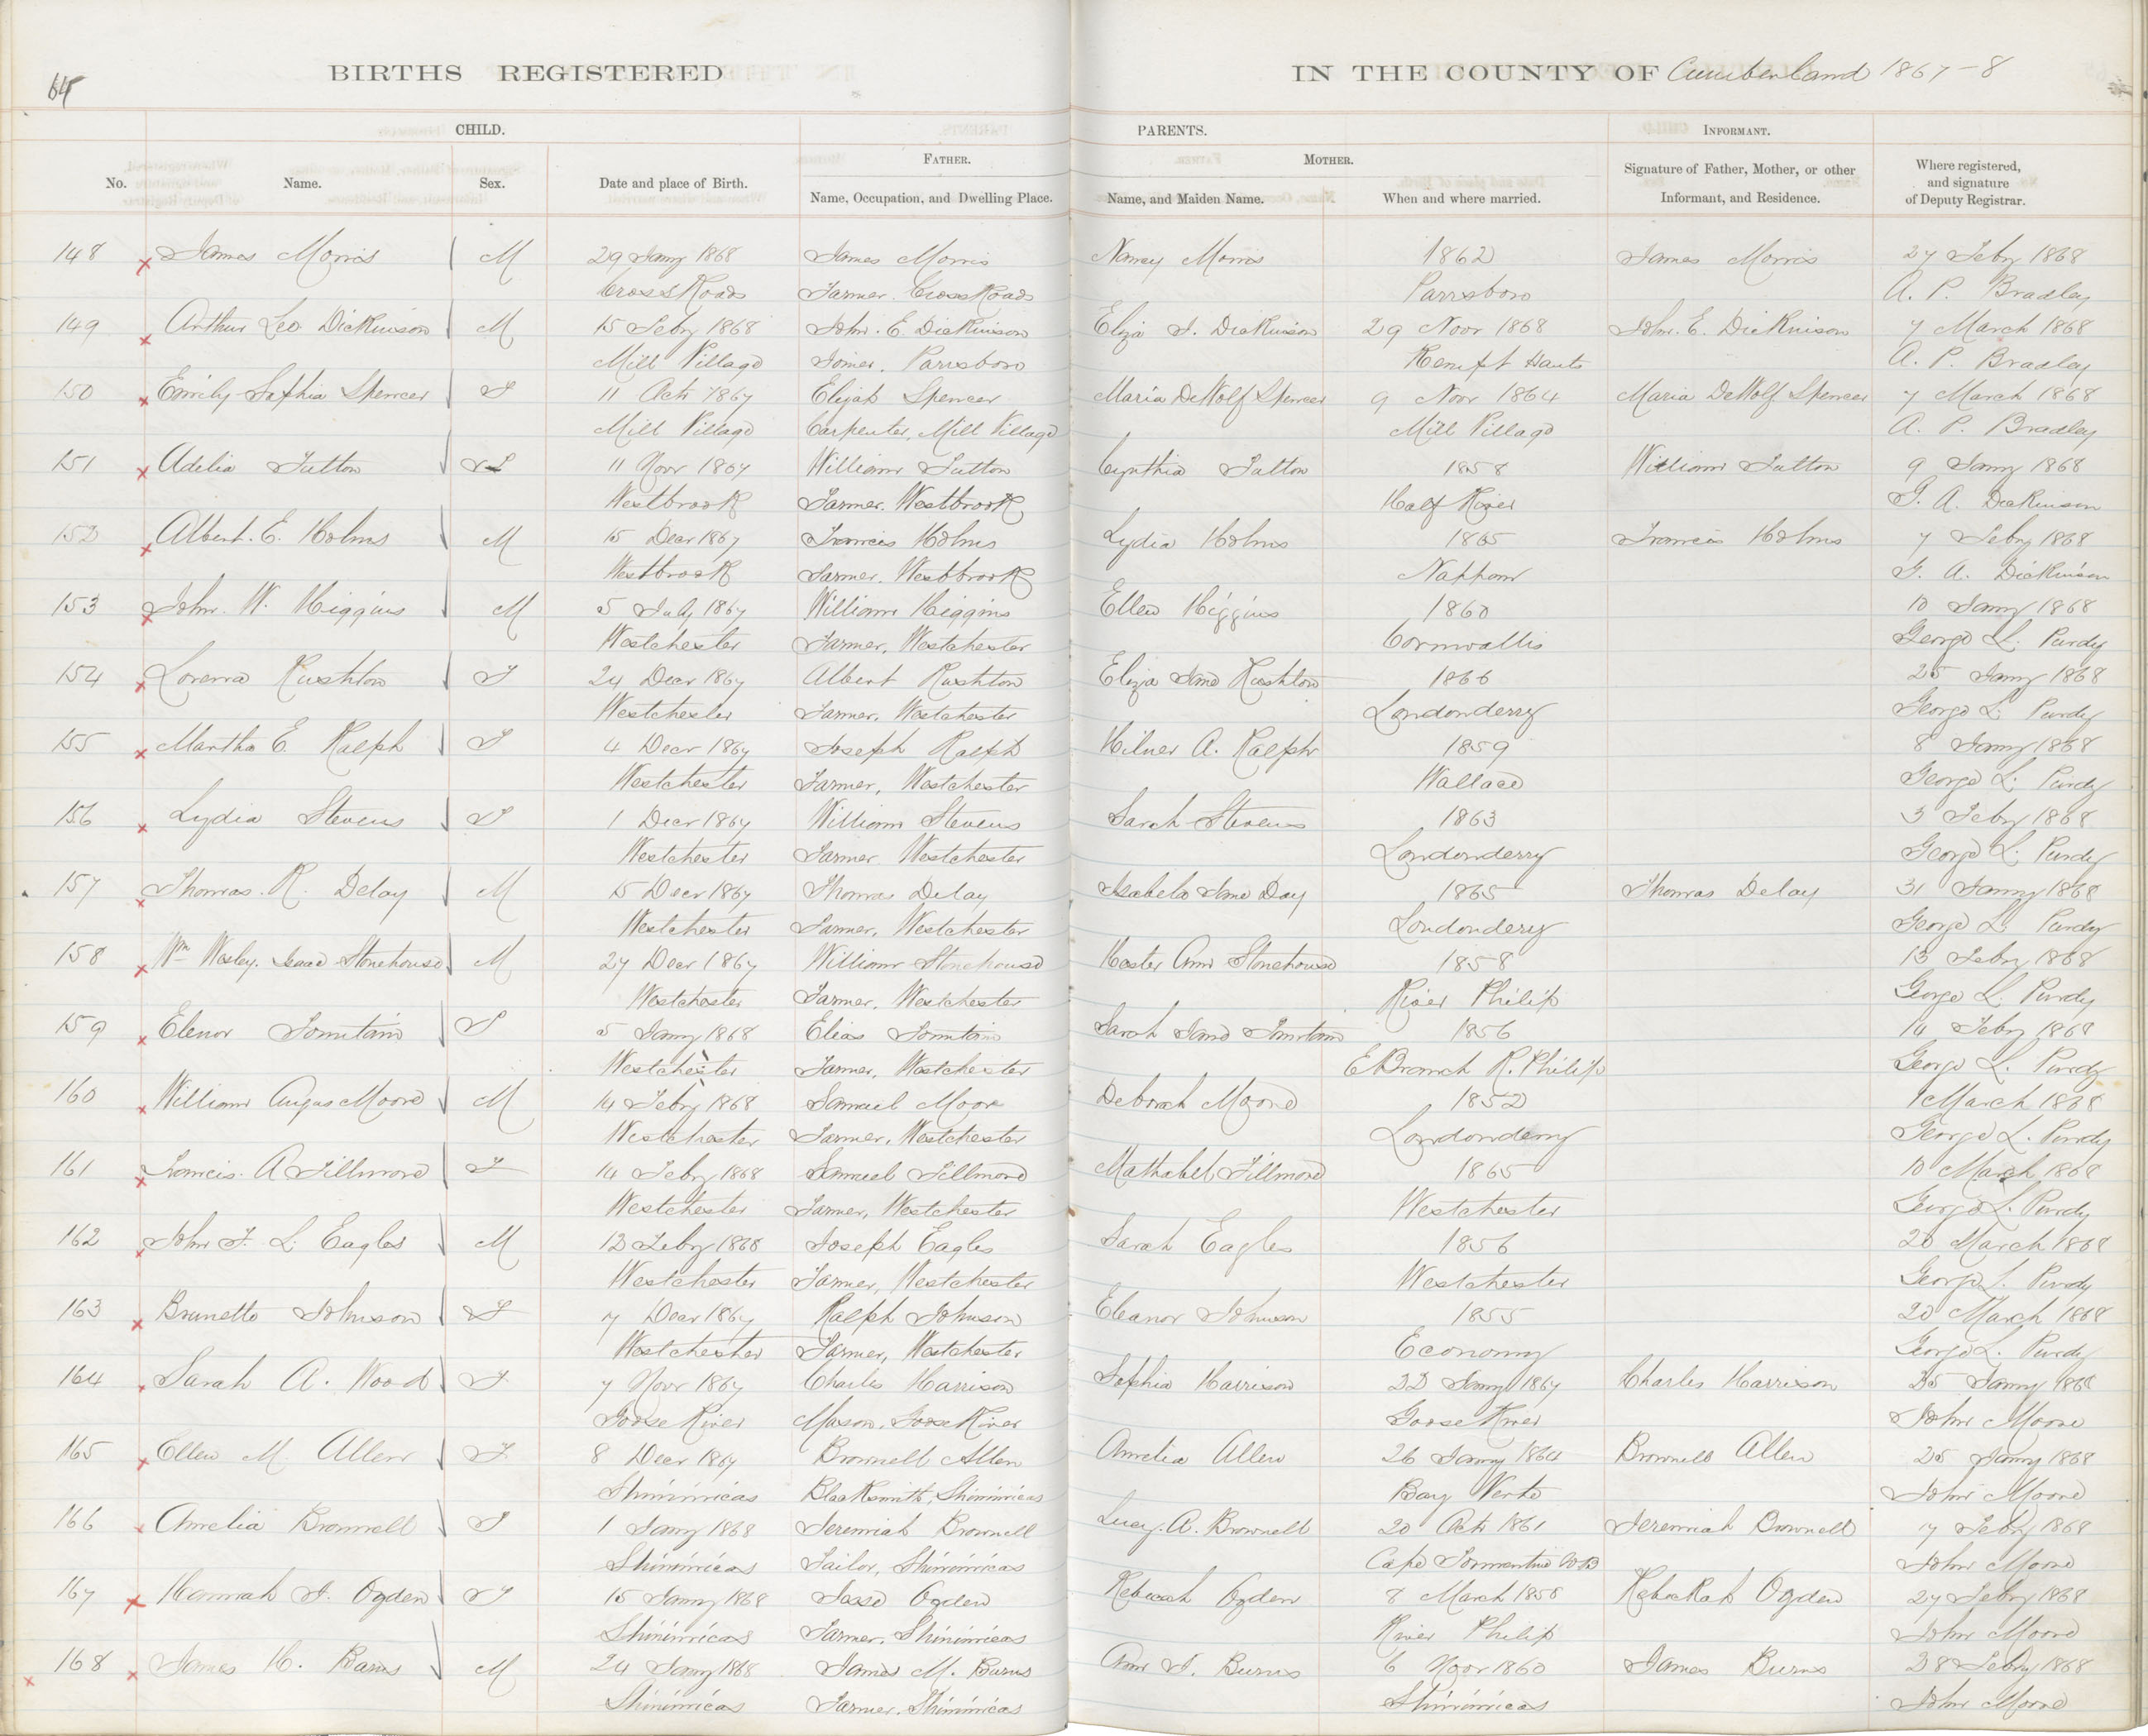 64
BIRTHS REGISTERED IN THE COUNTY OF Cumberland 1867-8
CHILD. PARENTS. INFORMANT.
FATHER. MOTHER.
No. Name. Sex. Date and place of Birth. Name, Occupation, and Dwelling Place. Name, and Maiden Name. When and where married. Signature of Father, Mother, or other Informant, and Residence. Where registered, and signature of Deputy Registrar.
148 James Morris M 29 Jany 1868 James Morris Nancy Morris 1862 James Morris 27 Feby 1868
Cross Roads Farmer. Cross Roads Parrsboro A. P. Bradley
149 Arthur Leo Dickinson M 15 Feby 1868 John. E. Dickinson Eliza J. Dickinson 29 Novr 1868 John. E. Dickinson 7 March 1868
Mill Village Joiner. Parrsboro Kempt Hants A. P. Bradley
150 Emily Sophia Spencer F 11 Octr 1867 Elijah Spencer Maria DeWolf Spencer 9 Novr 1864 Maria DeWolf Spencer 7 March 1868
Mill Village Carpenter, Mill Village Mill Village A. P. Bradley
151 Adelia Fulton F 11 Novr 1867 William Fulton Cynthia Fulton 1858 William Fulton 9 Jany 1868
Westbrook Farmer. Westbrook Half River G. A. Dickinson
152 Albert. E. Holms M 15 Decr 1867 Francis Holms Lydia Holms 1865 Francis Holms 7 Feby 1868
Westbrook Farmer. Westbrook Nappan G. A. Dickinson
153 John. W. Higgins M 5 July 1867 William Higgins Ellen Higgins 1860 10 Jany 1868
Westchester Farmer, Westchester Cornwallis George L. Purdy
154 Lorenra Rushton F 24 Decr 1867 Albert Rushton Eliza Jane Rushton 1866 25 Jany 1868
Westchester Farmer, Westchester Londonderry George L. Purdy
155 Martha E. Ralph F 4 Decr 1867 Joseph Ralph Hilner A. Ralph 1859 8 Jany 1868
Westchester Farmer, Westchester Wallace George L. Purdy
156 Lydia Stevens F 1 Decr 1867 William Stevens Sarah Stevens 1863 3 Feby 1868
Westchester Farmer, Westchester Londonderry George L. Purdy
157 Thomas. R. Delay M 15 Decr 1867 Thomas Delay Isabela Jane Day 1865 Thomas Delay 31 Jany 1868
Westchester Farmer, Westchester Londonderry George L. Purdy
158 Wm Wesley. Isaac Stonehouse M 27 Decr 1867 William Stonehouse Hester Ann Stonehouse 1858 13 Feby 1868
Westchester Farmer, Westchester River Philip George L. Purdy
159 Elenor Fountain F 5 Jany 1868 Elias Fountain Sarah Jane Fountain 1856 14 Feby 1868
Westchester Farmer, Westchester E Branch R. Philip George L. Purdy
160 William Angus Moore M 14 Feby 1868 Samuel Moore Deborah Moore 1852 1 March 1868
Westchester Farmer, Westchester Londonderry George L. Purdy
161 Francis. A Fillmore F 14 Feby 1868 Samuel Fillmore Mathabel Fillmore 1865 10 March 1868
Westchester Farmer, Westchester Westchester George L. Purdy
162 John F. L. Eagles M 12 Feby 1868 Joseph Eagles Sarah Eagles 1856 20 March 1868
Westchester Farmer, Westchester Westchester George L. Purdy
163 Brunette Johnson F 7 Decr 1867 Ralph Johnson Eleanor Johnson 1855 20 March 1868
Westchester Farmer, Westchester Economy George L. Purdy
164 Sarah A. Wood F 7 Novr 1867 Charles Harrison Sophia Harrison 22 Jany 1867 Charles Harrison 25 Jany 1868
Goose River Mason. Goose River Goose River John Moore
165 Ellen M. Allen F 8 Decr 1867 Brownell Allen Amelia Allen 26 Jany 1864 Brownell Allen 25 Jany 1868
Shinimicas Blacksmith, Shinimicas Bay Verte John Moore
166 Amelia Brownell F 1 Jany 1868 Jeremiah Brownell Lucy. A. Brownell 20 Octr 1861 Jeremiah Brownell 17 Feby 1868
Shinimicas Tailor, Shinimicas Cape Tormentine John Moore
167 Hannah J. Ogden F 15 Jany 1868 Jesse Ogden Rebecah Ogden 8 March 1858 Rebeckah Ogden 27 Feby 1868
Shinimicas Farmer. Shinimicas River Philip John Moore
168 James H. Barns M 24 Jany 1868 James M. Burns Ann J. Burns 6 Novr 1860 James Burns 28 Feby 1868
Shinimicas Farmer. Shinimicas Shinimicas John Moore